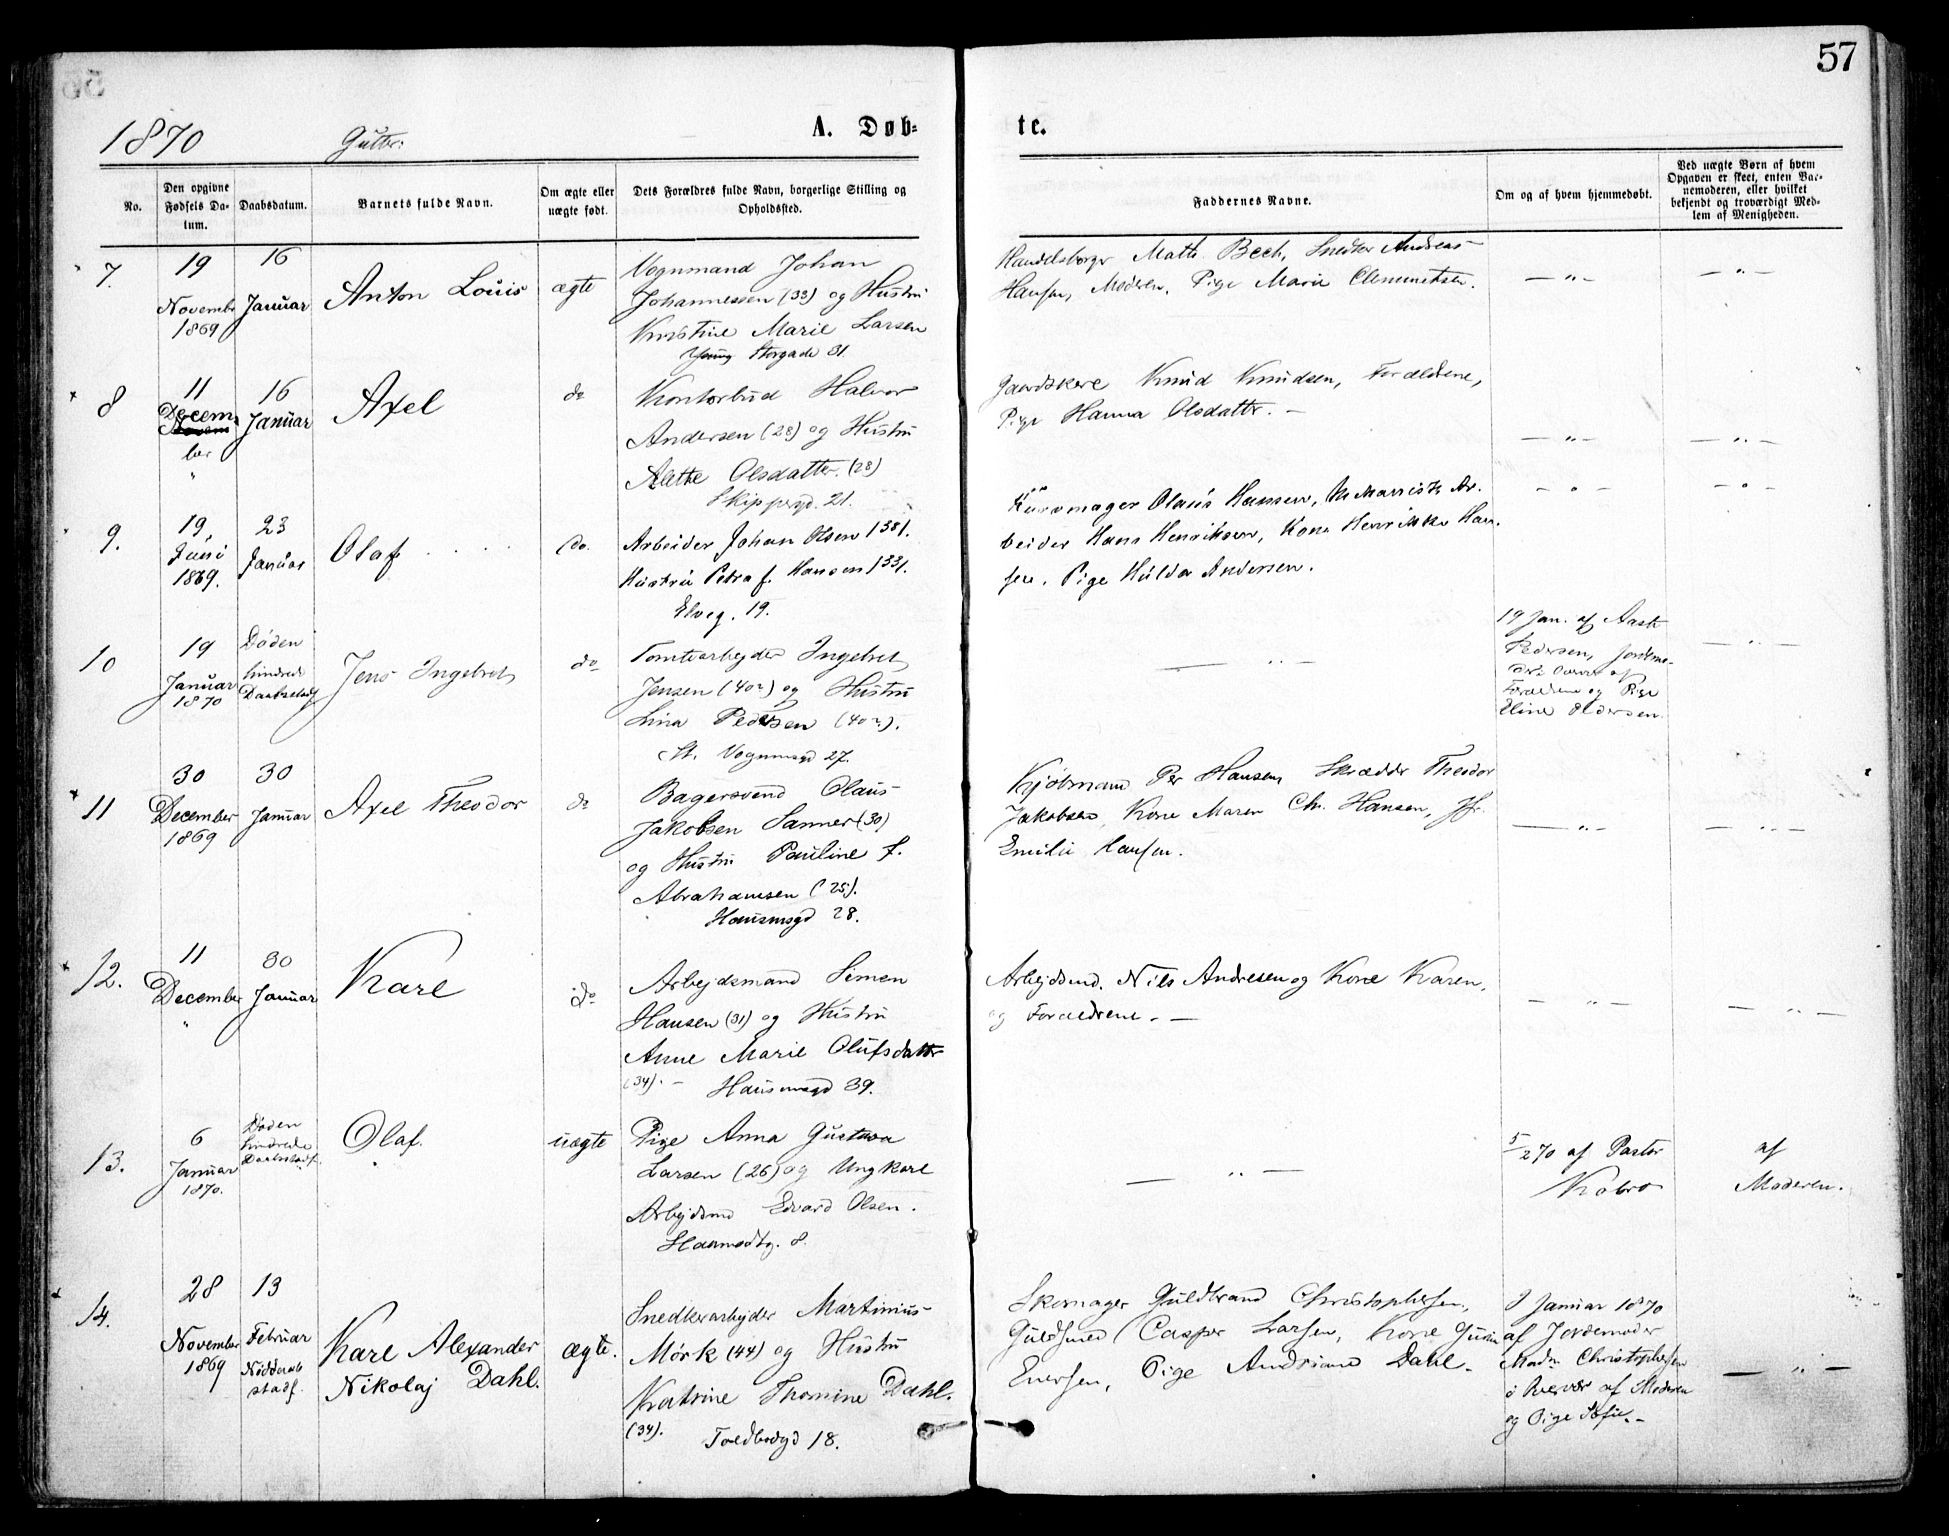 57
1870 Gutter:
A. Døb=
te.
No.
Den opgivne Fødsels Da-
tum.
Daabsdatum.
Barnets fulde Navn.
Om ægte eller
uægte født.
Dets Forældres fulde Navn, borgerlige Stilling og
Opholdssted.
Faddernes Navne.
Om og af hvem hjemmedøbt.
Ved uægte Børn af hvem
Opgaven er skeet, enten Bar-
nemoderen, eller hvilket
bekjendt og troværdigt Med-
lem af Menigheden.
7.
19
Novembr
1869
16
Januar
Anton Louis
ægte
Vognmand Johan
Johannessen (33) og Hustru
Kristine Marie Larsen
Storgade 31.
Handelsborger Math. Bech, Snedker Andreas
Hansen, Moderen, Pige Marie Clemmetsen.
— " —
— " —
8
11
Decem
ber
"
16
Januar
Axel
do
Kontorbud Halvor
Andersen (28) og Hustru
Alethe Olsdatter (28)
Skippergd. 21.
Gaardskere Knud Knudsen, Forældrene,
Pige Hanna Olsdatter. —
— " —
— " —
9.
19,
Juni
1869.
23
Januar
Olaf
do.
Arbeider Johan Olsen (38).
Hustru Petra f. Hansen (33).
Elveg. 19.
Kurvmager Olaus Hansen, Ar-
beider Hans Henriksen, Kone Henrikke Han-
sen. Pige Hulda Andersen.
— " —
— " —
10
19
Januar
1870
Døden
hindrede
Daabstadf
Jens Ingebret
do
Tomtearbejder Ingebret
Jensen (40) og Hustru
Lina Pedersen (40).
St. Vognmgd 27.
— " —
19 Jan. af Aasta
Pedersen, Jordmo-
der
Forældrene og Pige
Eline Pedersen.
— " —
11
30
December
1869
30
Januar
Axel Theodor
do
Bagersvend Olaus
Jakobsen Sanner (30)
og Hustru Pauline f.
Abrahamsen (25).
Hausmsgd 28.
Kjøbmand Per Hansen, Skrædder Theodor
Jakobsen, Kone Maren Chr. Hansen, Jfr.
Emilie Hansen.
— " —
— " —
12.
11
December
"
30
Januar
Karl
do
Arbejdsmand Simen
Hansen (31) og Hustru
Anne Marie Olufsdatter
(34). — Hausmsgd 39.
Arbejdsmd. Nils Andresen og Kone Karen,
og Forældrene. —
— " —
— " —
13.
6
Januar
1870.
Døden
hindrede
Daabstadf.
Olaf.
uægte
Pige Anna Gustava
Larsen (26) og Ungkarl
Arbejdsmd Edvard Olsen.
8.
— " —
5/2 70 af Pastor
Kobro
af
Moderen.
14.
28
November
1869
13
Februar
Nøddaab
stadf.
Karl Alexander
Nikolaj Dahl.
ægte.
Snedkerarbejder Martinius
Mørk (44) og Hustru
Katrine Thomine Dahl.
(34). Toldbodgd 18.
Skomager Guldbrand Christophersen,
Guldsmed Casper Larsen, Kone
Eversen, Pige Andriane Dahl.
Januar 1870
af Jordemoder
Madm Christophersen
i Overvær af Moderen
og Pige Sofie. —
— " —